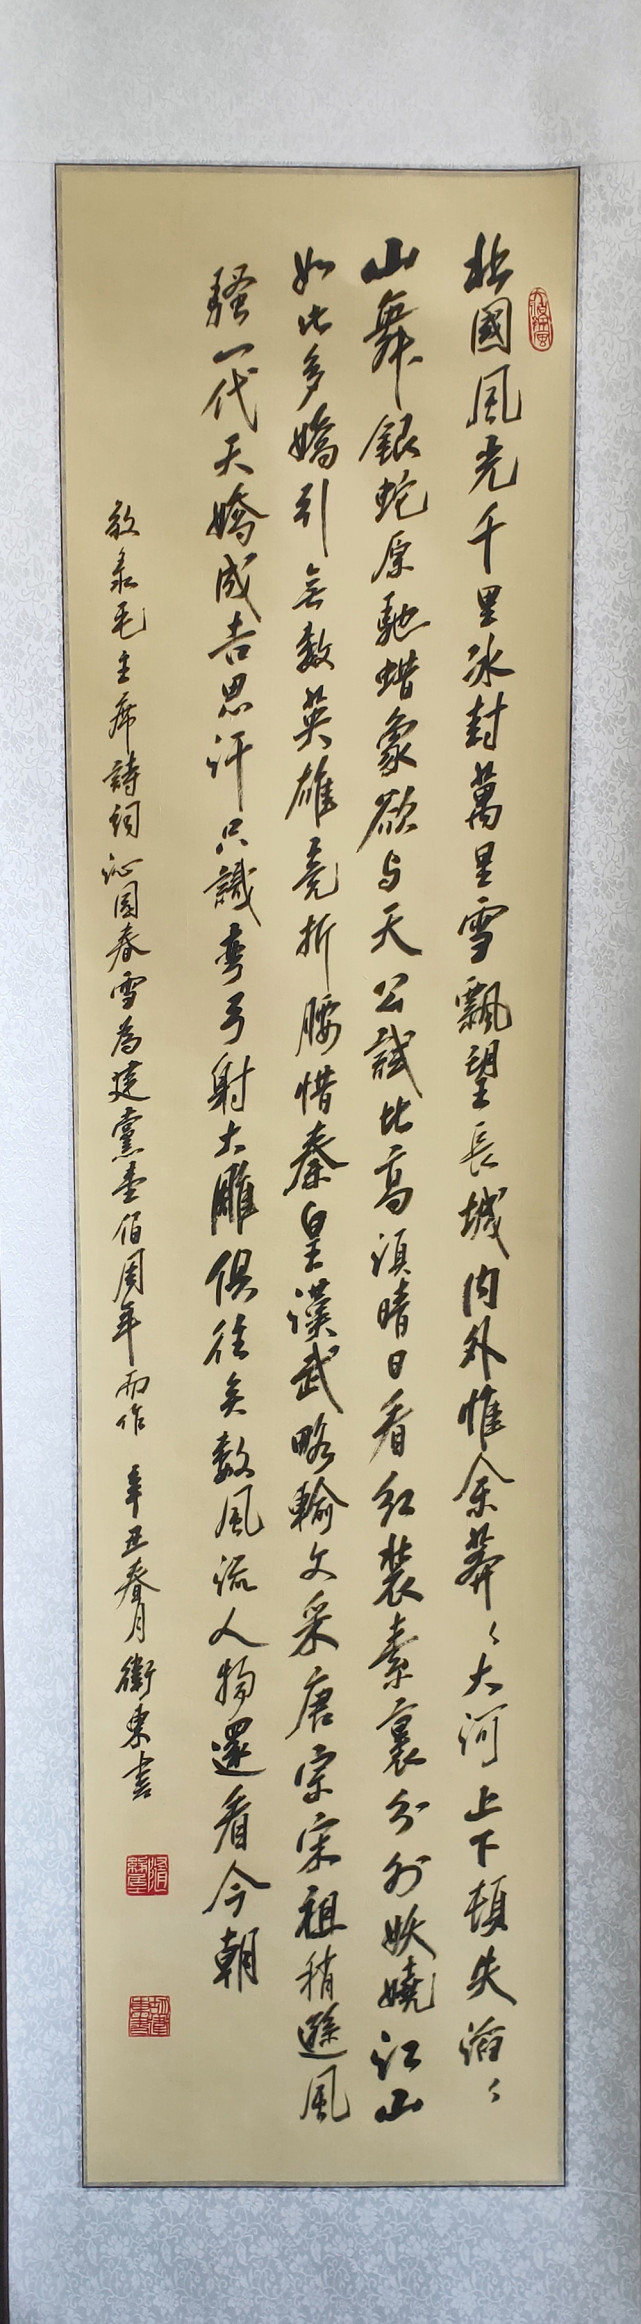 北國風光千里冰封萬里雪飄望長城内外惟余莽〻大河上下頓失滔〻
山舞銀蛇原馳蜡象欲与天公試比高須晴日看紅裝素裹分外妖嬈江山
如此多嬌引無數英雄竞折腰惜秦皇漢武略輸文采唐宗宋祖稍遜風
騷一代天嬌成吉思汗只識彎弓射大雕俱往矣數風流人物還看今朝
敬录毛主席詩詞沁园春雪為建黨壹佰周年而作 辛丑春月衛東書